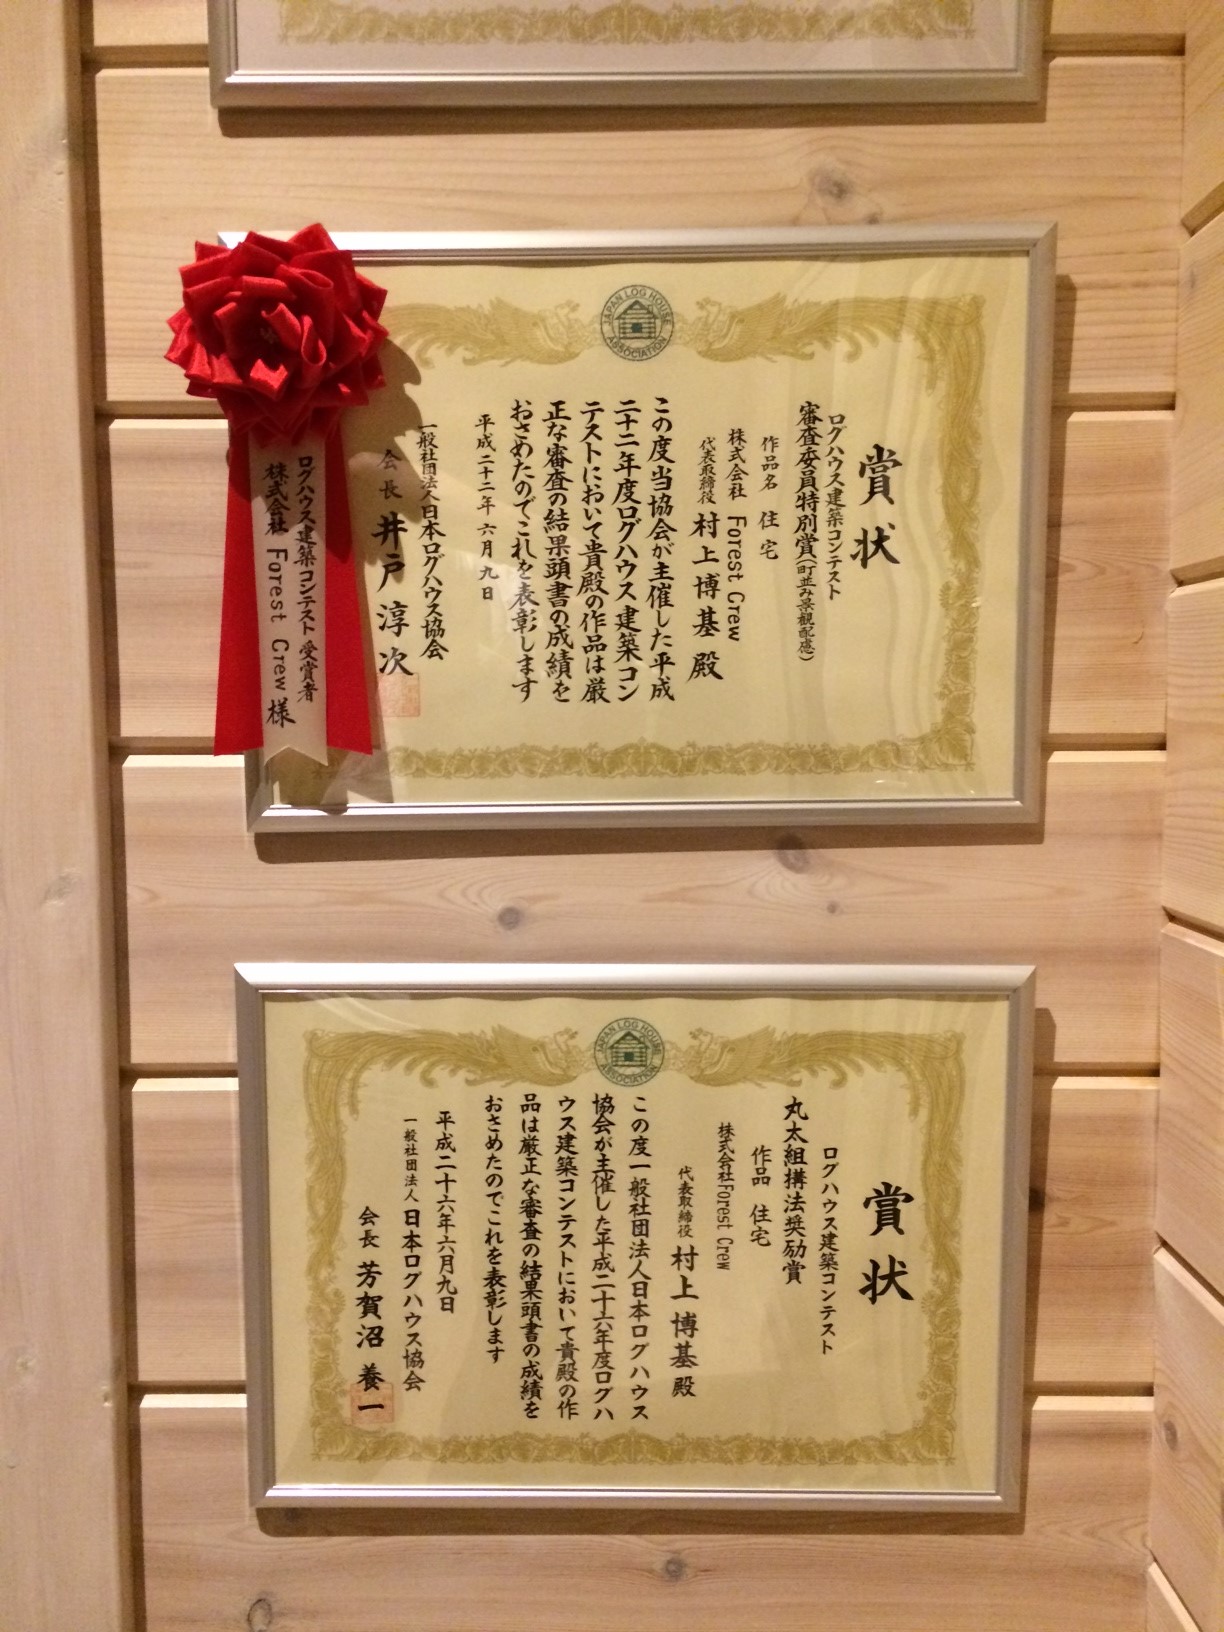 JAPAN LOG HOUSE ASSOCIATION
賞状
ログハウス建築コンテスト
審査委員特別賞(町並み景観配慮)
作品名 住宅
株式会社 Forest Crew
代表取締役 村上博基 殿
この度当協会が主催した平成
二十二年度ログハウス建築コン
テストにおいて貴殿の作品は厳
正な審査の結果頭書の成績を
おさめたのでこれを表彰します
平成二十二年六月九日
一般社団法人日本ログハウス協会
会長 井戸淳次
ログハウス建築コンテスト 受賞者
株式会社 Forest Crew 様
JAPAN LOG HOUSE ASSOCIATION
賞状
ログハウス建築コンテスト
丸太組構法奨励賞
作品 住宅
株式会社Forest Crew
代表取締役 村上 博基 殿
この度一般社団法人日本ログハウス
協会が主催した平成二十六年度ログハ
ウス建築コンテストにおいて貴殿の作
品は厳正な審査の結果頭書の成績を
おさめたのでこれを表彰します
平成二十六年六月九日
一般社団法人 日本ログハウス協会
会長 芳賀沼 養一